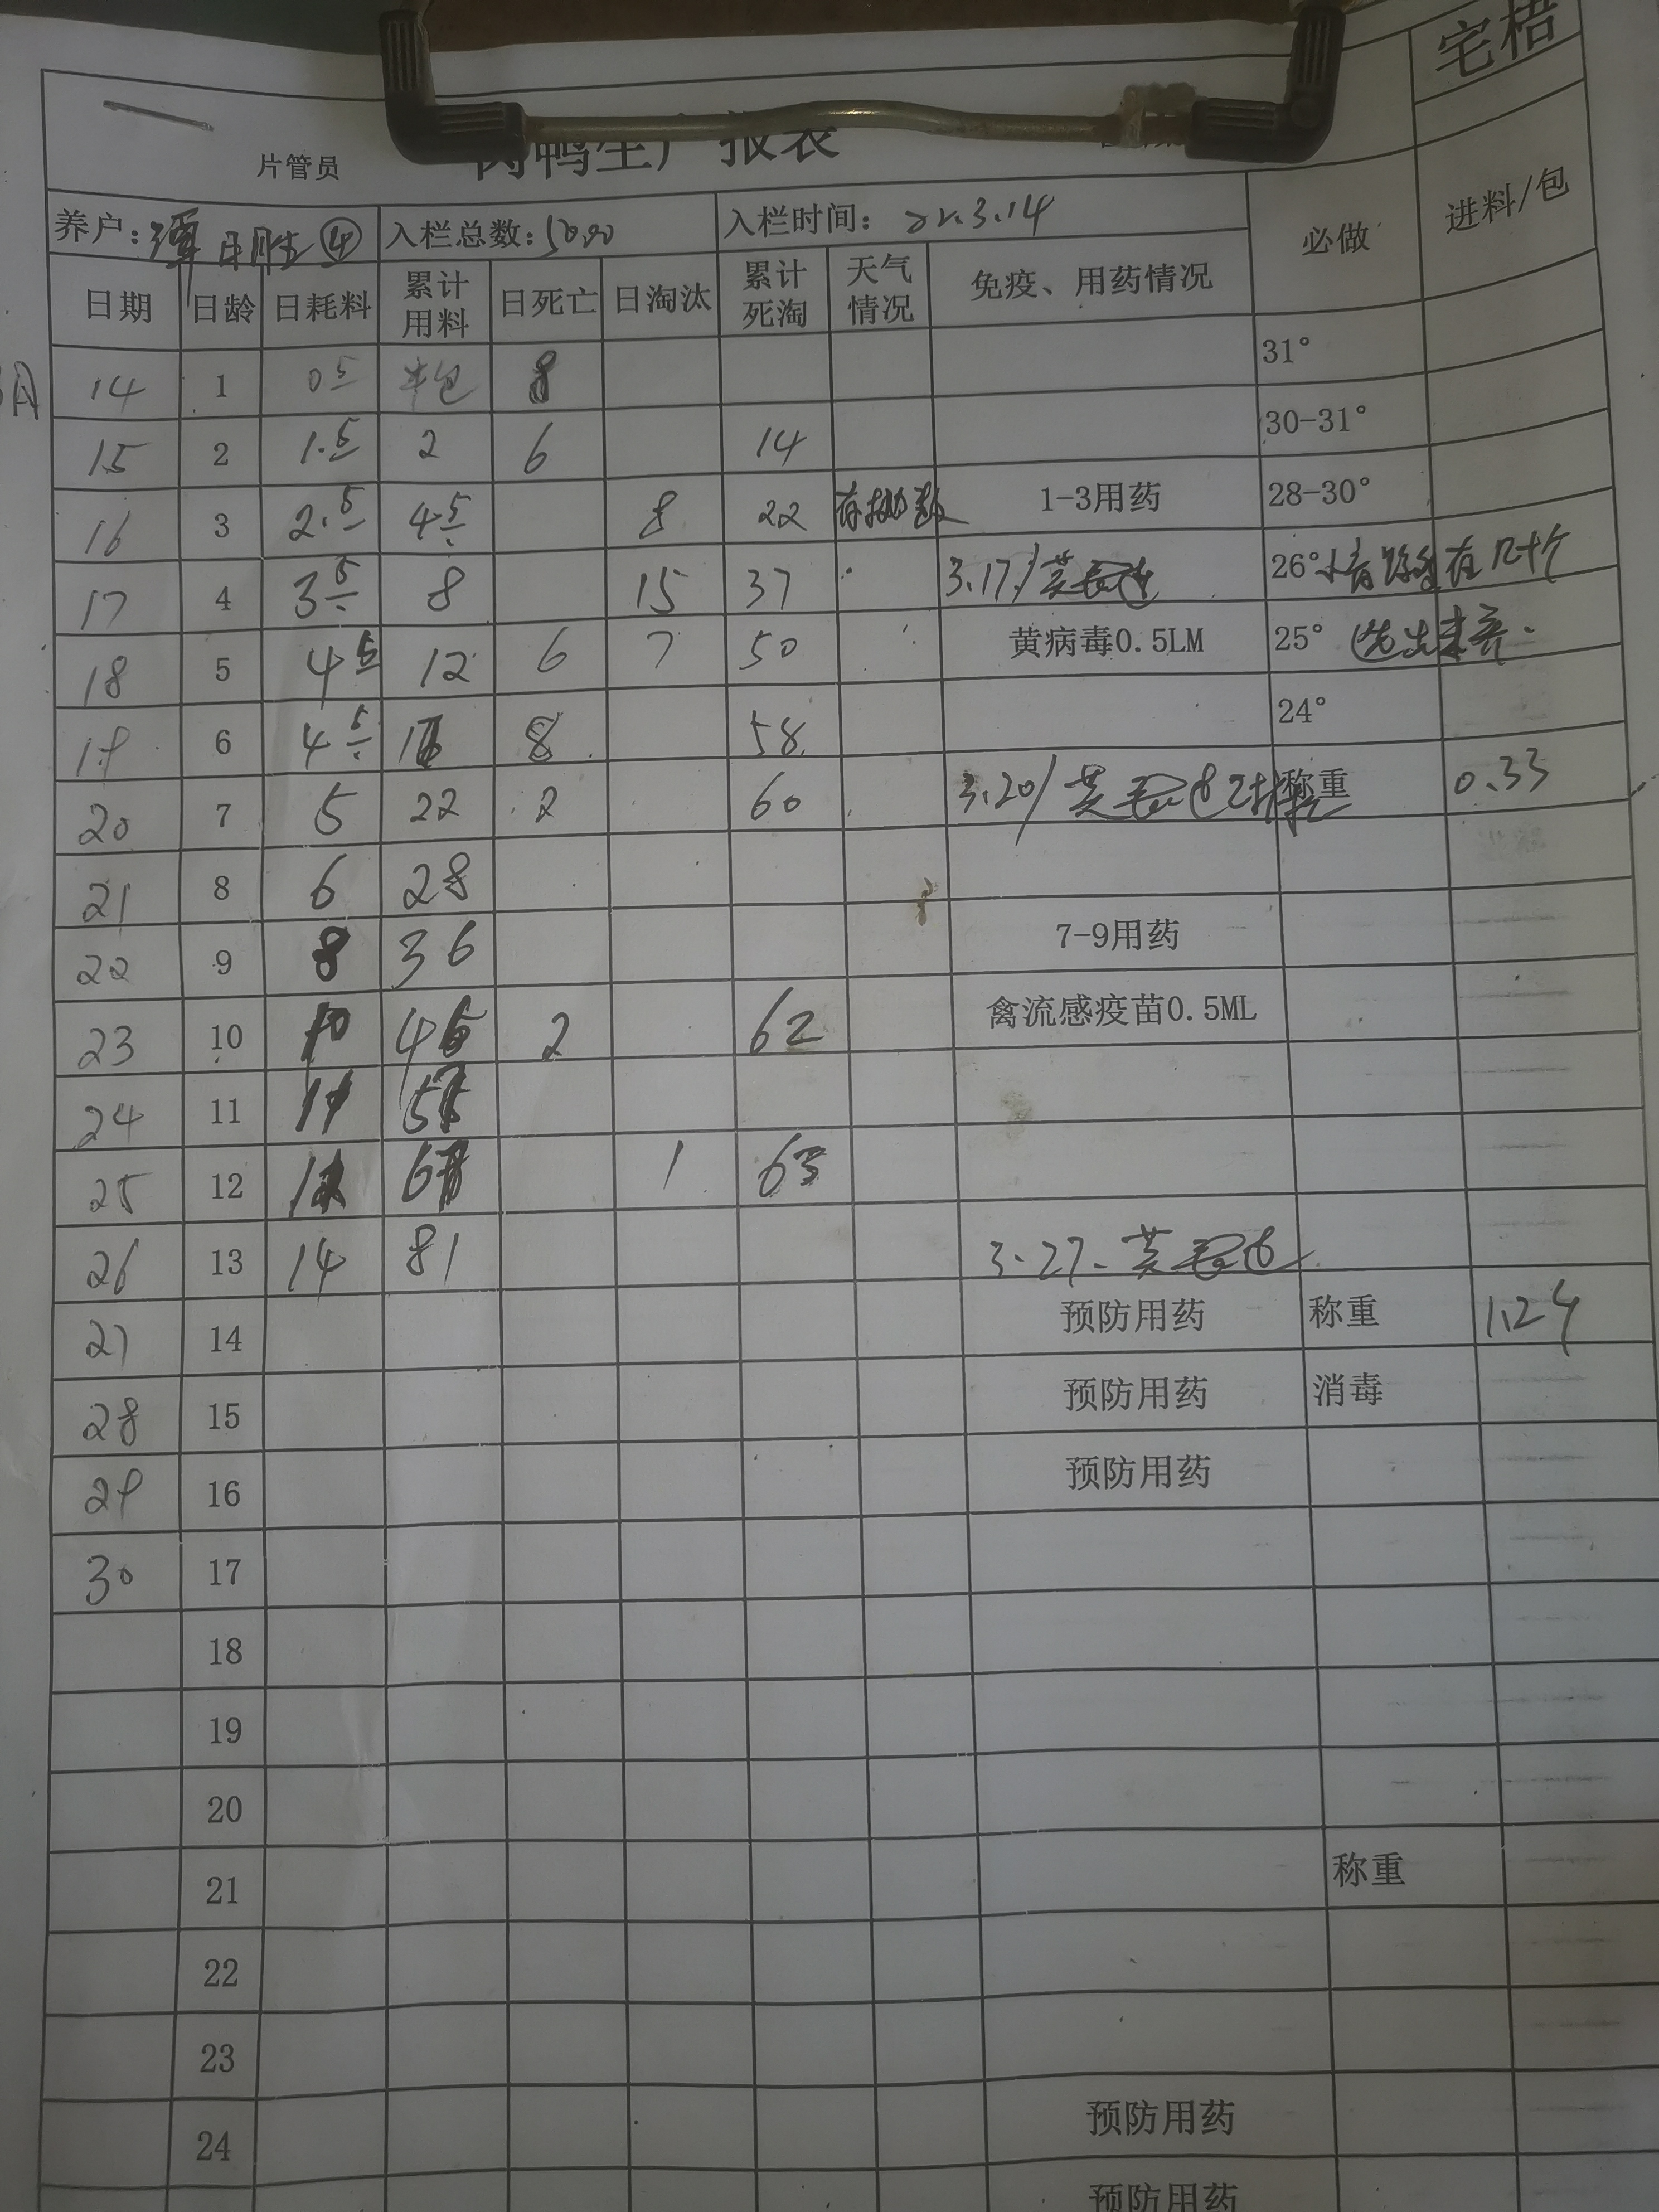 宅梧
片管员 肉鸭生产报表
养户: 谭日胜④ 入栏总数: 5000 入栏时间: 22.3.14 必做 进料/包
日期 日龄 日耗料 累计用料 日死亡 日淘汰 累计死淘 天气情况 免疫、用药情况
3月 14 1 0.5 半包 8 31°
15 2 1.5 2 6 14 30-31°
16 3 2.5 4.5 8 22 1-3用药 28-30°
17 4 3.5 8 15 37 3.17/ 26° 有几十个
18 5 4.5 12 6 7 50 黄病毒0.5LM 25° 选出来养.
19 6 4.5 8 58 24°
20 7 5 22 2 60 3.20/ 称重 0.33
21 8 6 28
22 9 8 36 7-9用药
23 10 10 46 2 62 禽流感疫苗0.5ML
24 11 11
25 12 1 63
26 13 14 81 3.27.
27 14 预防用药 称重 1.24
28 15 预防用药 消毒
29 16 预防用药
30 17
18
19
20
21 称重
22
23
24 预防用药
预防用药